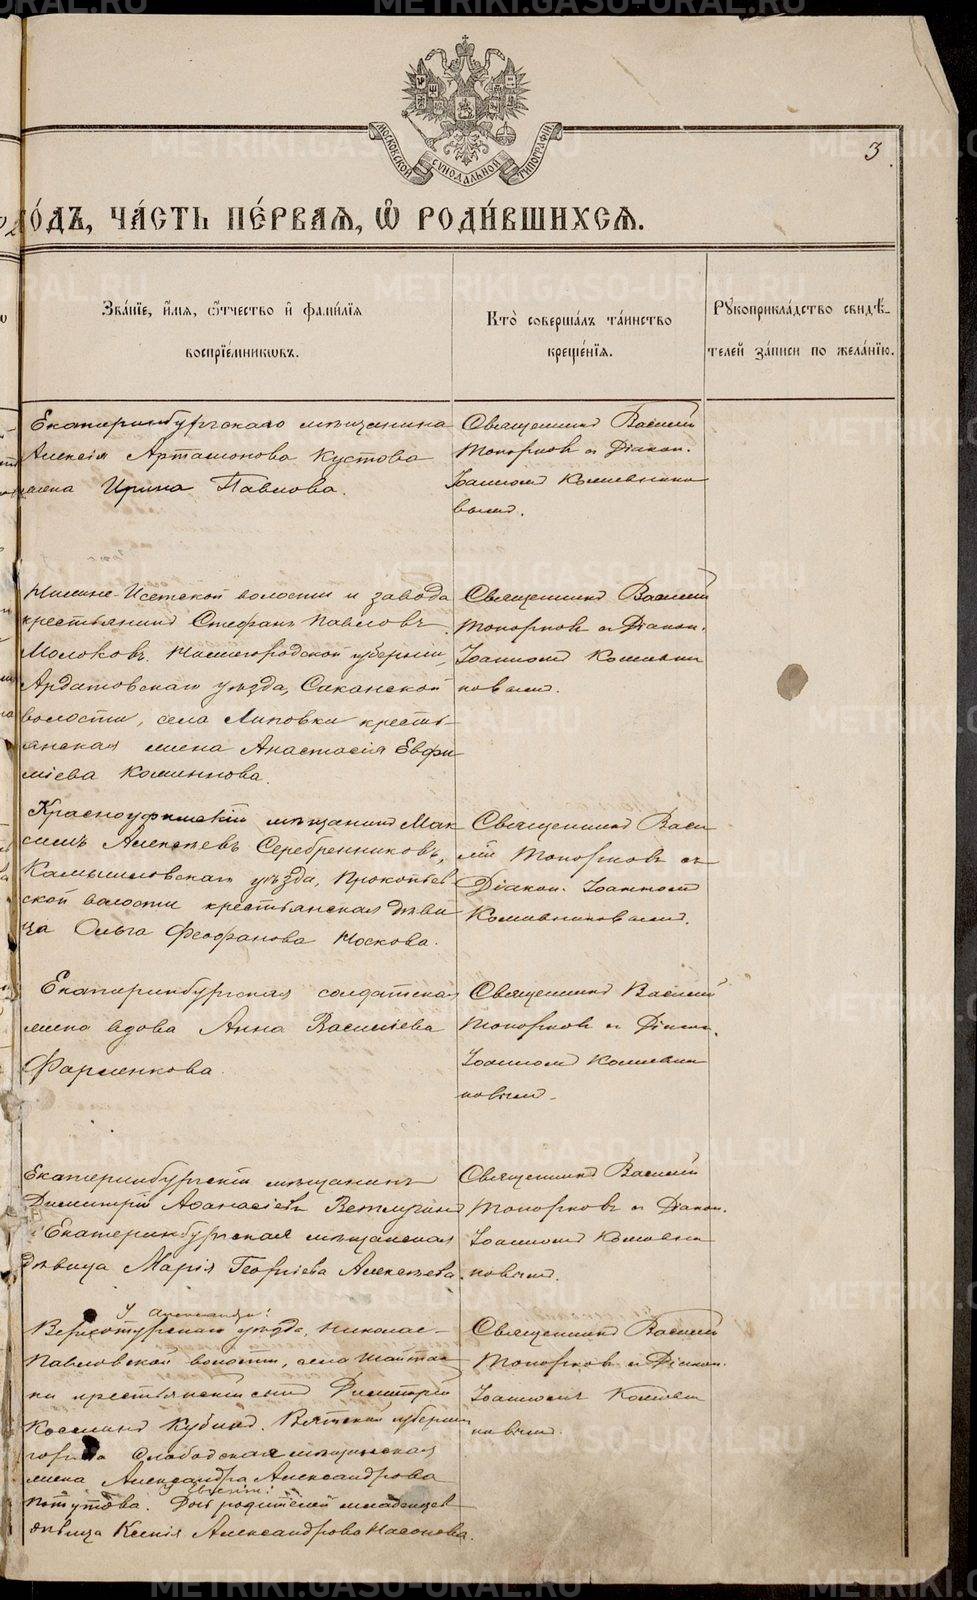 METRIKI.GASO-URAL.RU
МОСКОВСКОЙ СѴНОДАЛЬНОЙ ТИПОГРАФІИ
3.
го́дъ, ча́сть пе́рвая, ѡ҆ роди́вшихся.
Зва́нїе, и҆́мя, ѻ҆́тчество и҆ фами́лїя
воспрїе́мникѡвъ.
Кто̀ соверша́лъ та́инство
креще́нїя.
Рꙋкоприкла́дство свидѣ́-
телей за́писи по жела́нїю.
Екатеринбургскаго мѣщанина
Алексія Артамонова Кустова
жена Ирина Павлова.
Священникъ Василій
Топорковъ съ Діакон.
Іоанномъ Кошевнико
вымъ.
Нижне-Исетской волости и завода
крестьянинъ Стефанъ Павловъ
Молоковъ. Нижегородской губерніи,
Ардатовскаго уѣзда, Саканской
волости, села Липовки кресть-
янская жена Анастасія Евфи
міева
Священникъ Василій
Топорковъ съ Діакон.
Іоанномъ Кошевни
ковымъ.
Красноуфимскій мѣщанинъ Мак
симъ Алексѣевъ Серебренниковъ,
Камышловскаго уѣзда, Прокопьев
ской волости крестьянская дѣви
ца Ольга Феофанова Носкова.
Священникъ Васи
лій Топорковъ съ
Діакон. Іоанномъ
Кошевниковымъ.
Екатеринбургская солдатская
жена вдова Анна Василіева
Фарленкова.
Священникъ Василій
Топорковъ съ Діакон.
Іоанномъ Кошевни
ковымъ.
Екатеринбургскій мѣщанинъ
Димитрій Аѳанасіевъ Ветлугинъ
Екатеринбургская мѣщанская
дѣвица Марія Георгіева Алексѣева.
Священникъ Василій
Топорковъ съ Діакон.
Іоанномъ Кошевни
ковымъ.
У Александр:
Верхотурскаго уѣзда, Николае-
Павловской волости, села Шайтан
ки крестьянскій сынъ Димитрій
Космин Кубинъ. Вятской губерніи
города Слободская мѣщанская
жена Александра Александрова
У Евгені:
Дочь родителей младенцев
дѣвица Ксенія Александрова Насонова.
Священникъ Василій
Топорковъ и Діакон.
Іоаннъ Кошев
ковымъ.